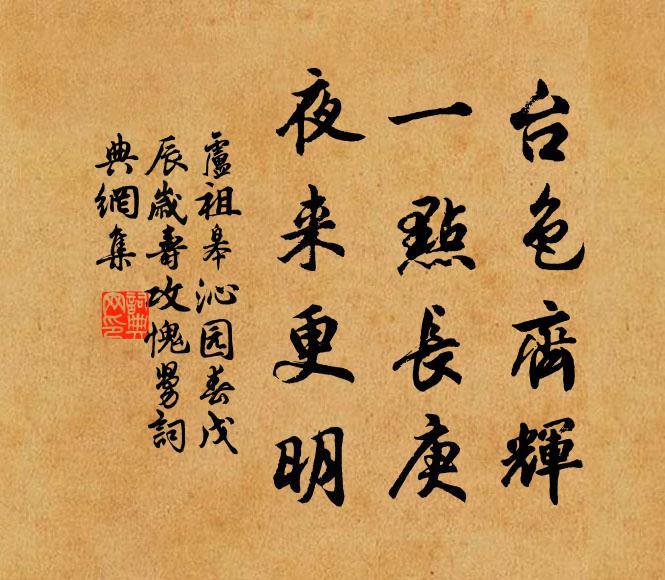 台色齊輝
一點長庚
夜来更明
盧祖皋沁园春戊
辰歲壽攻愧舅詞
典網集
詞典
网印